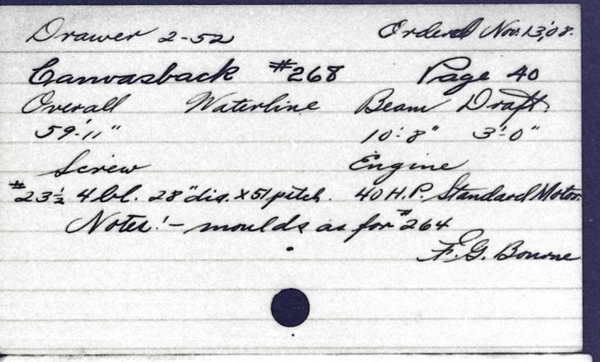 Drawer 2-52 Ordered Nov. 13,'08.
Canvasback #268 Page 40
Overall Waterline Beam Draft
59'-11" 10'-8" 3'-0"
Screw Engine
#23½ 4 bl. 28" dis. x 51 pitch. 40 H.P. Standard Motor.
Notes:- moulds as for #264
F.G. Bourne